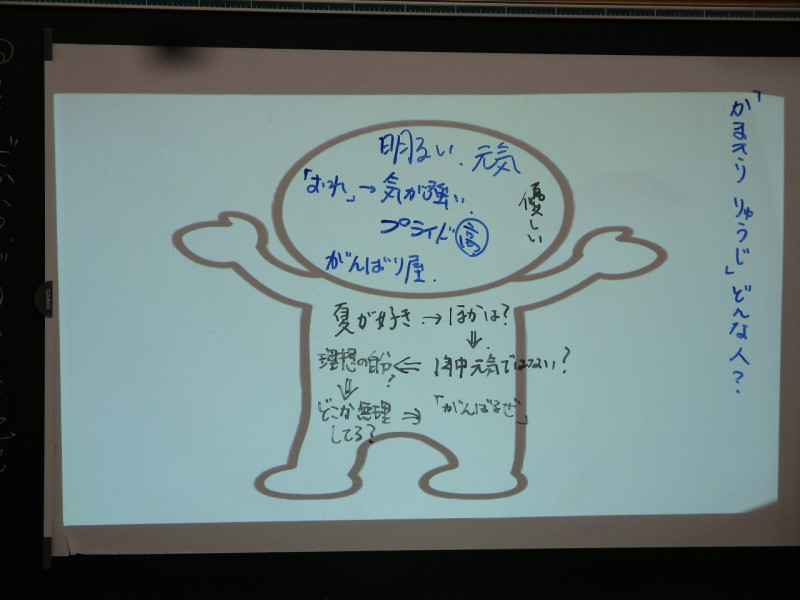 「かまきり りゅうじ」どんな人？
明るい、元気
「おれ」→気が強い
優しい
プライド高
がんばり屋
夏が好き→ほかは？
⇓
年中元気ではない？
⇐
理想の自分？
⇓
どこか無理してる？
⇒
「がんばるぜ」
CASIO